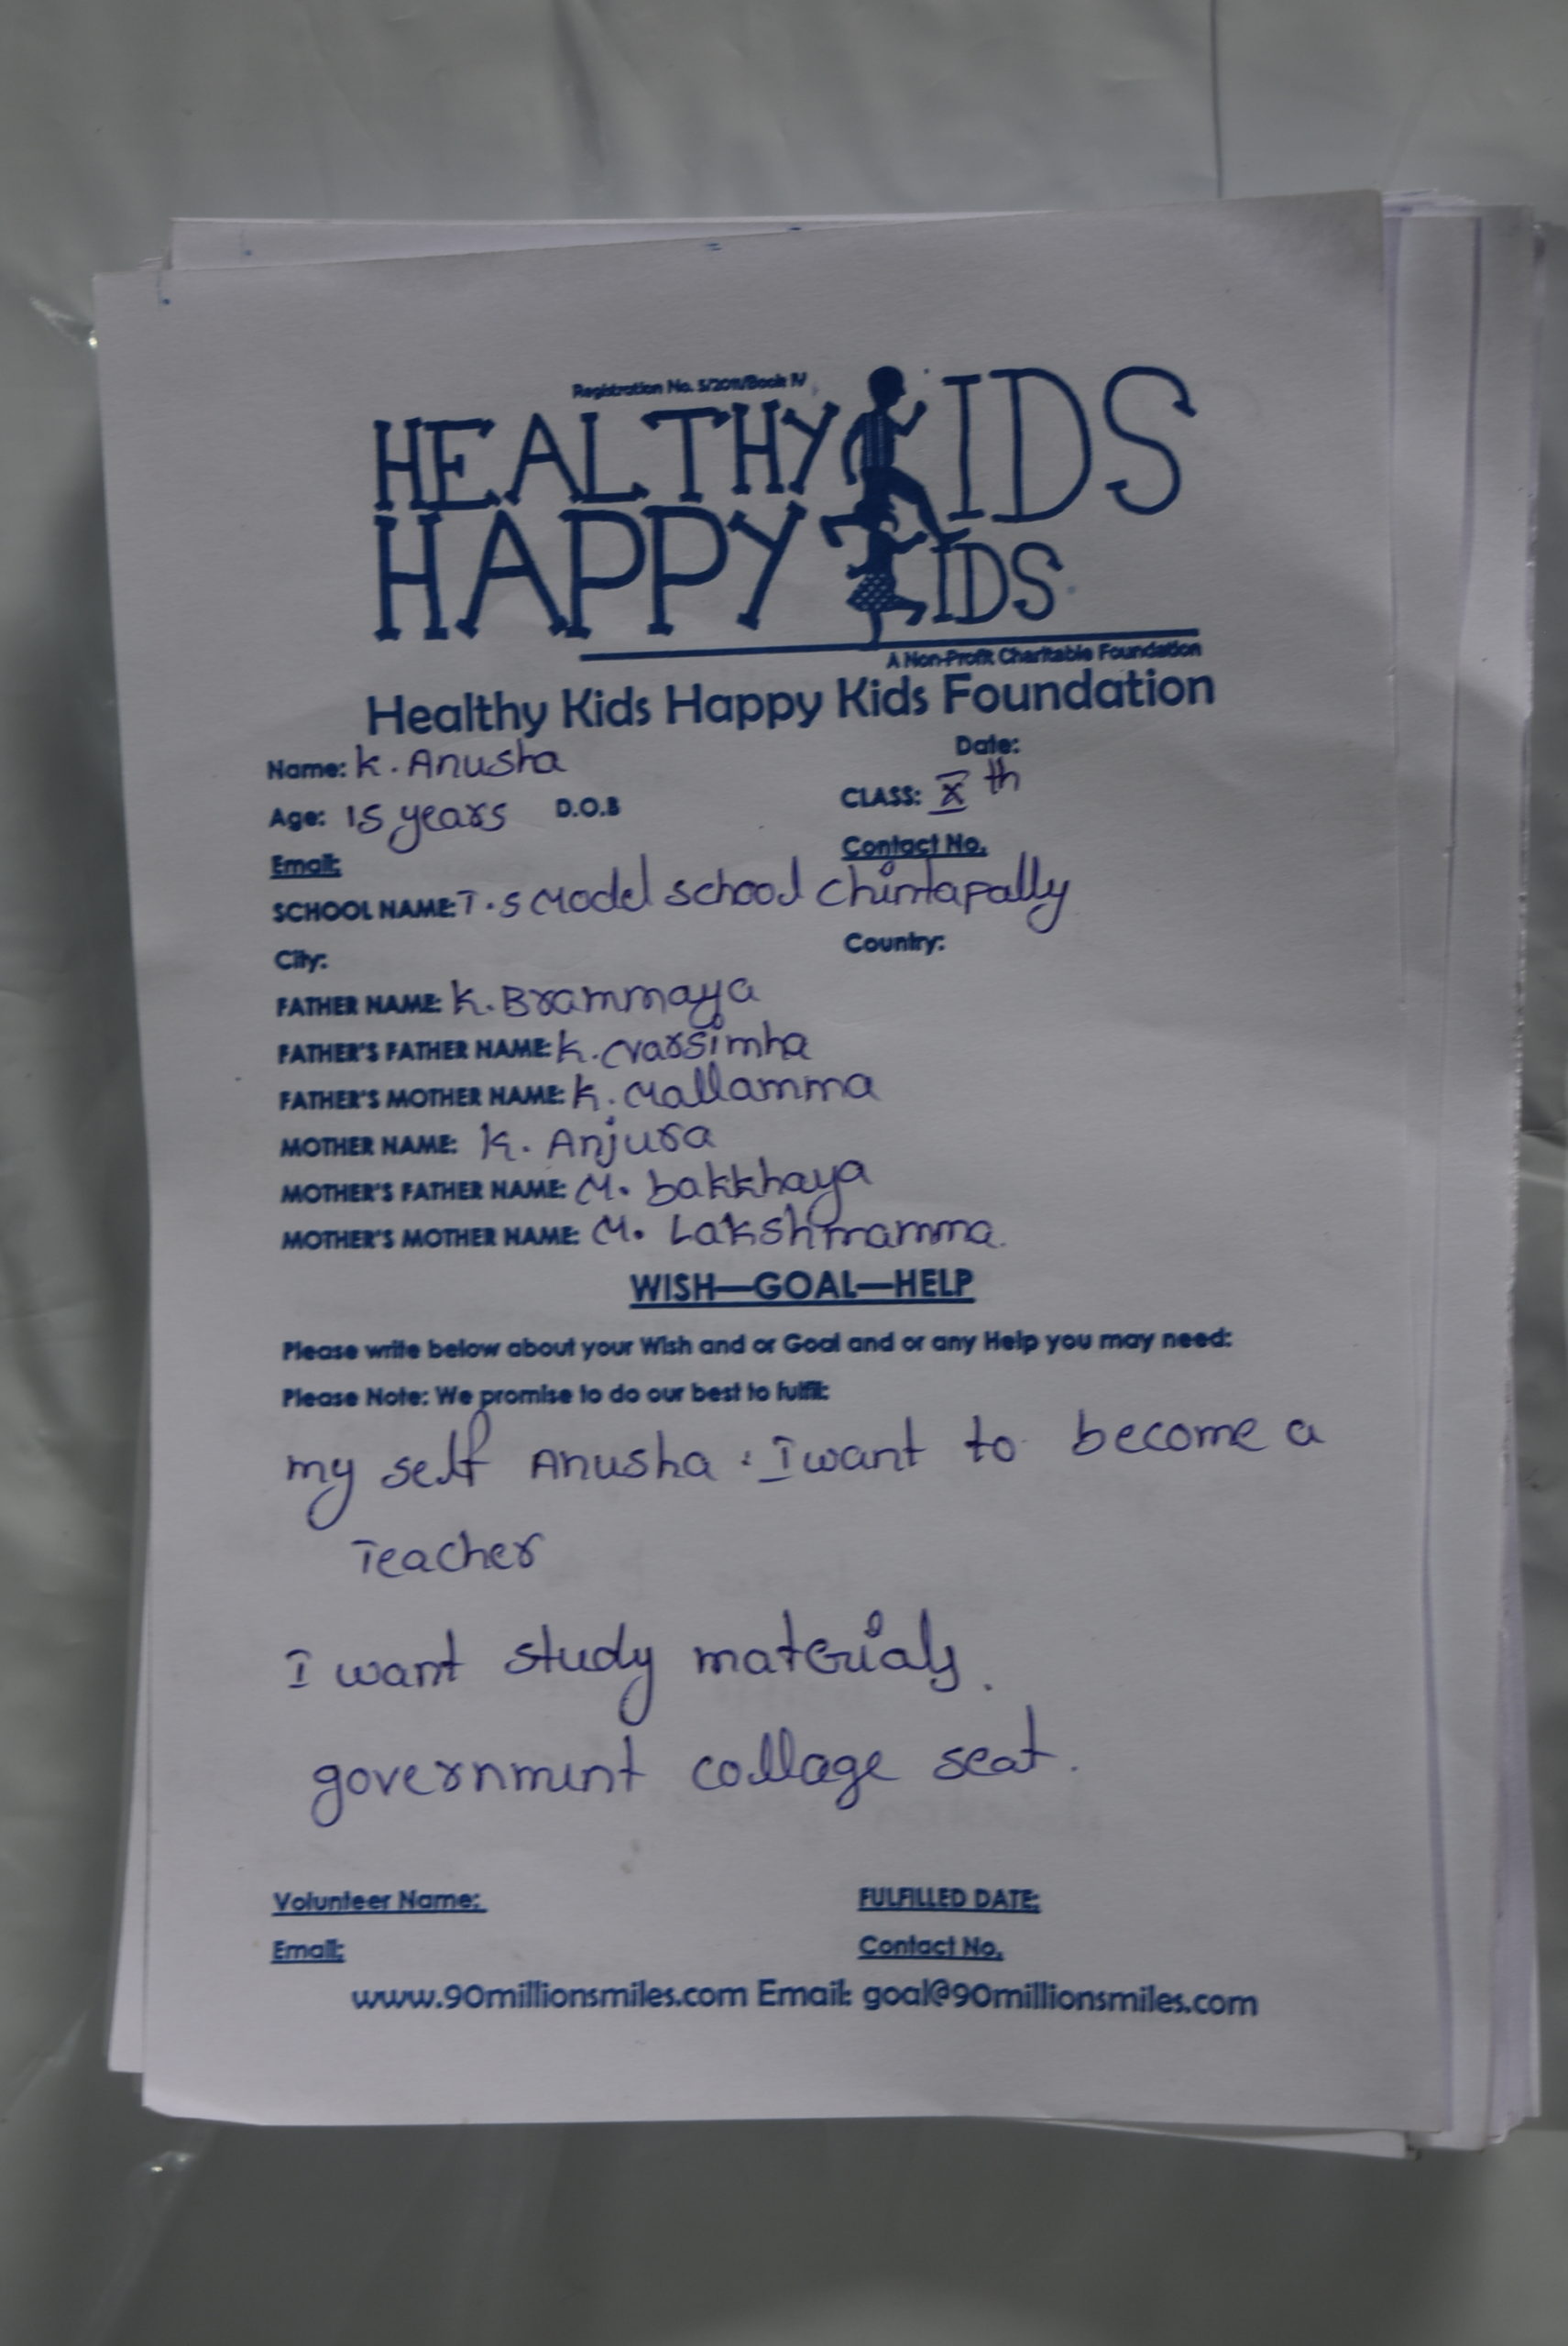 Registration No. 5/2011/Book IV
HEALTHY KIDS
HAPPY KIDS
A Non-Profit Charitable Foundation
Healthy Kids Happy Kids Foundation
Name: K. Anusha Date:
Age: 15 years D.O.B CLASS: X th
Email: Contact No.
SCHOOL NAME: T.S Model school Chintapally
City: Country:
FATHER NAME: K. Brammaya
FATHER'S FATHER NAME: K. Narsimha
FATHER'S MOTHER NAME: K. Mallamma
MOTHER NAME: K. Anjura
MOTHER'S FATHER NAME: M. bakkhaya
MOTHER'S MOTHER NAME: M. Lakshmamma.
WISH—GOAL—HELP
Please write below about your Wish and or Goal and or any Help you may need:
Please Note: We promise to do our best to fulfil:
my self Anusha . I want to become a
Teacher
I want study materials.
government collage seat.
Volunteer Name: FULFILLED DATE:
Email: Contact No.
www.90millionsmiles.com Email: goal@90millionsmiles.com